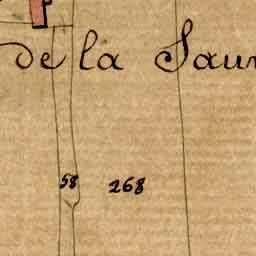 de la
58 268